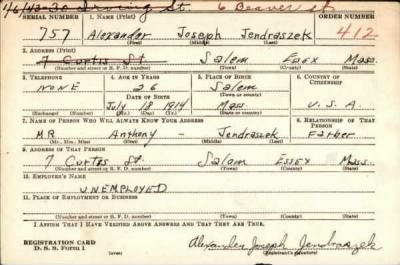 4/6/43-30 Irving St. 6 Beaver St
SERIAL NUMBER 1. NAME (Print) ORDER NUMBER
757 Alexander Joseph Jendraszek 412
(First) (Middle) (Last)
2. ADDRESS (Print)
7 Curtis St. Salem Essex Mass.
(Number and street or R. F. D. number) (Town) (County) (State)
3. TELEPHONE 4. AGE IN YEARS 5. PLACE OF BIRTH 6. COUNTRY OF CITIZENSHIP
NONE 26 Salem
DATE OF BIRTH (Town or county)
July 18 1914 Mass. U.S.A
(Exchange) (Number) (Mo.) (Day) (Yr.) (State or country)
7. NAME OF PERSON WHO WILL ALWAYS KNOW YOUR ADDRESS 8. RELATIONSHIP OF THAT PERSON
MR Anthony - Jendraszek Father
(Mr., Mrs., Miss) (First) (Middle) (Last)
9. ADDRESS OF THAT PERSON
7 Curtis St. Salem Essex Mass.
(Number and street or R. F. D. number) (Town) (County) (State)
10. EMPLOYER'S NAME
UNEMPLOYED
11. PLACE OF EMPLOYMENT OR BUSINESS
(Number and street or R. F. D. number) (Town) (County) (State)
I AFFIRM THAT I HAVE VERIFIED ABOVE ANSWERS AND THAT THEY ARE TRUE.
REGISTRATION CARD
D. S. S. Form 1 (over) Alexander Joseph Jendraszek
(Registrant's signature)